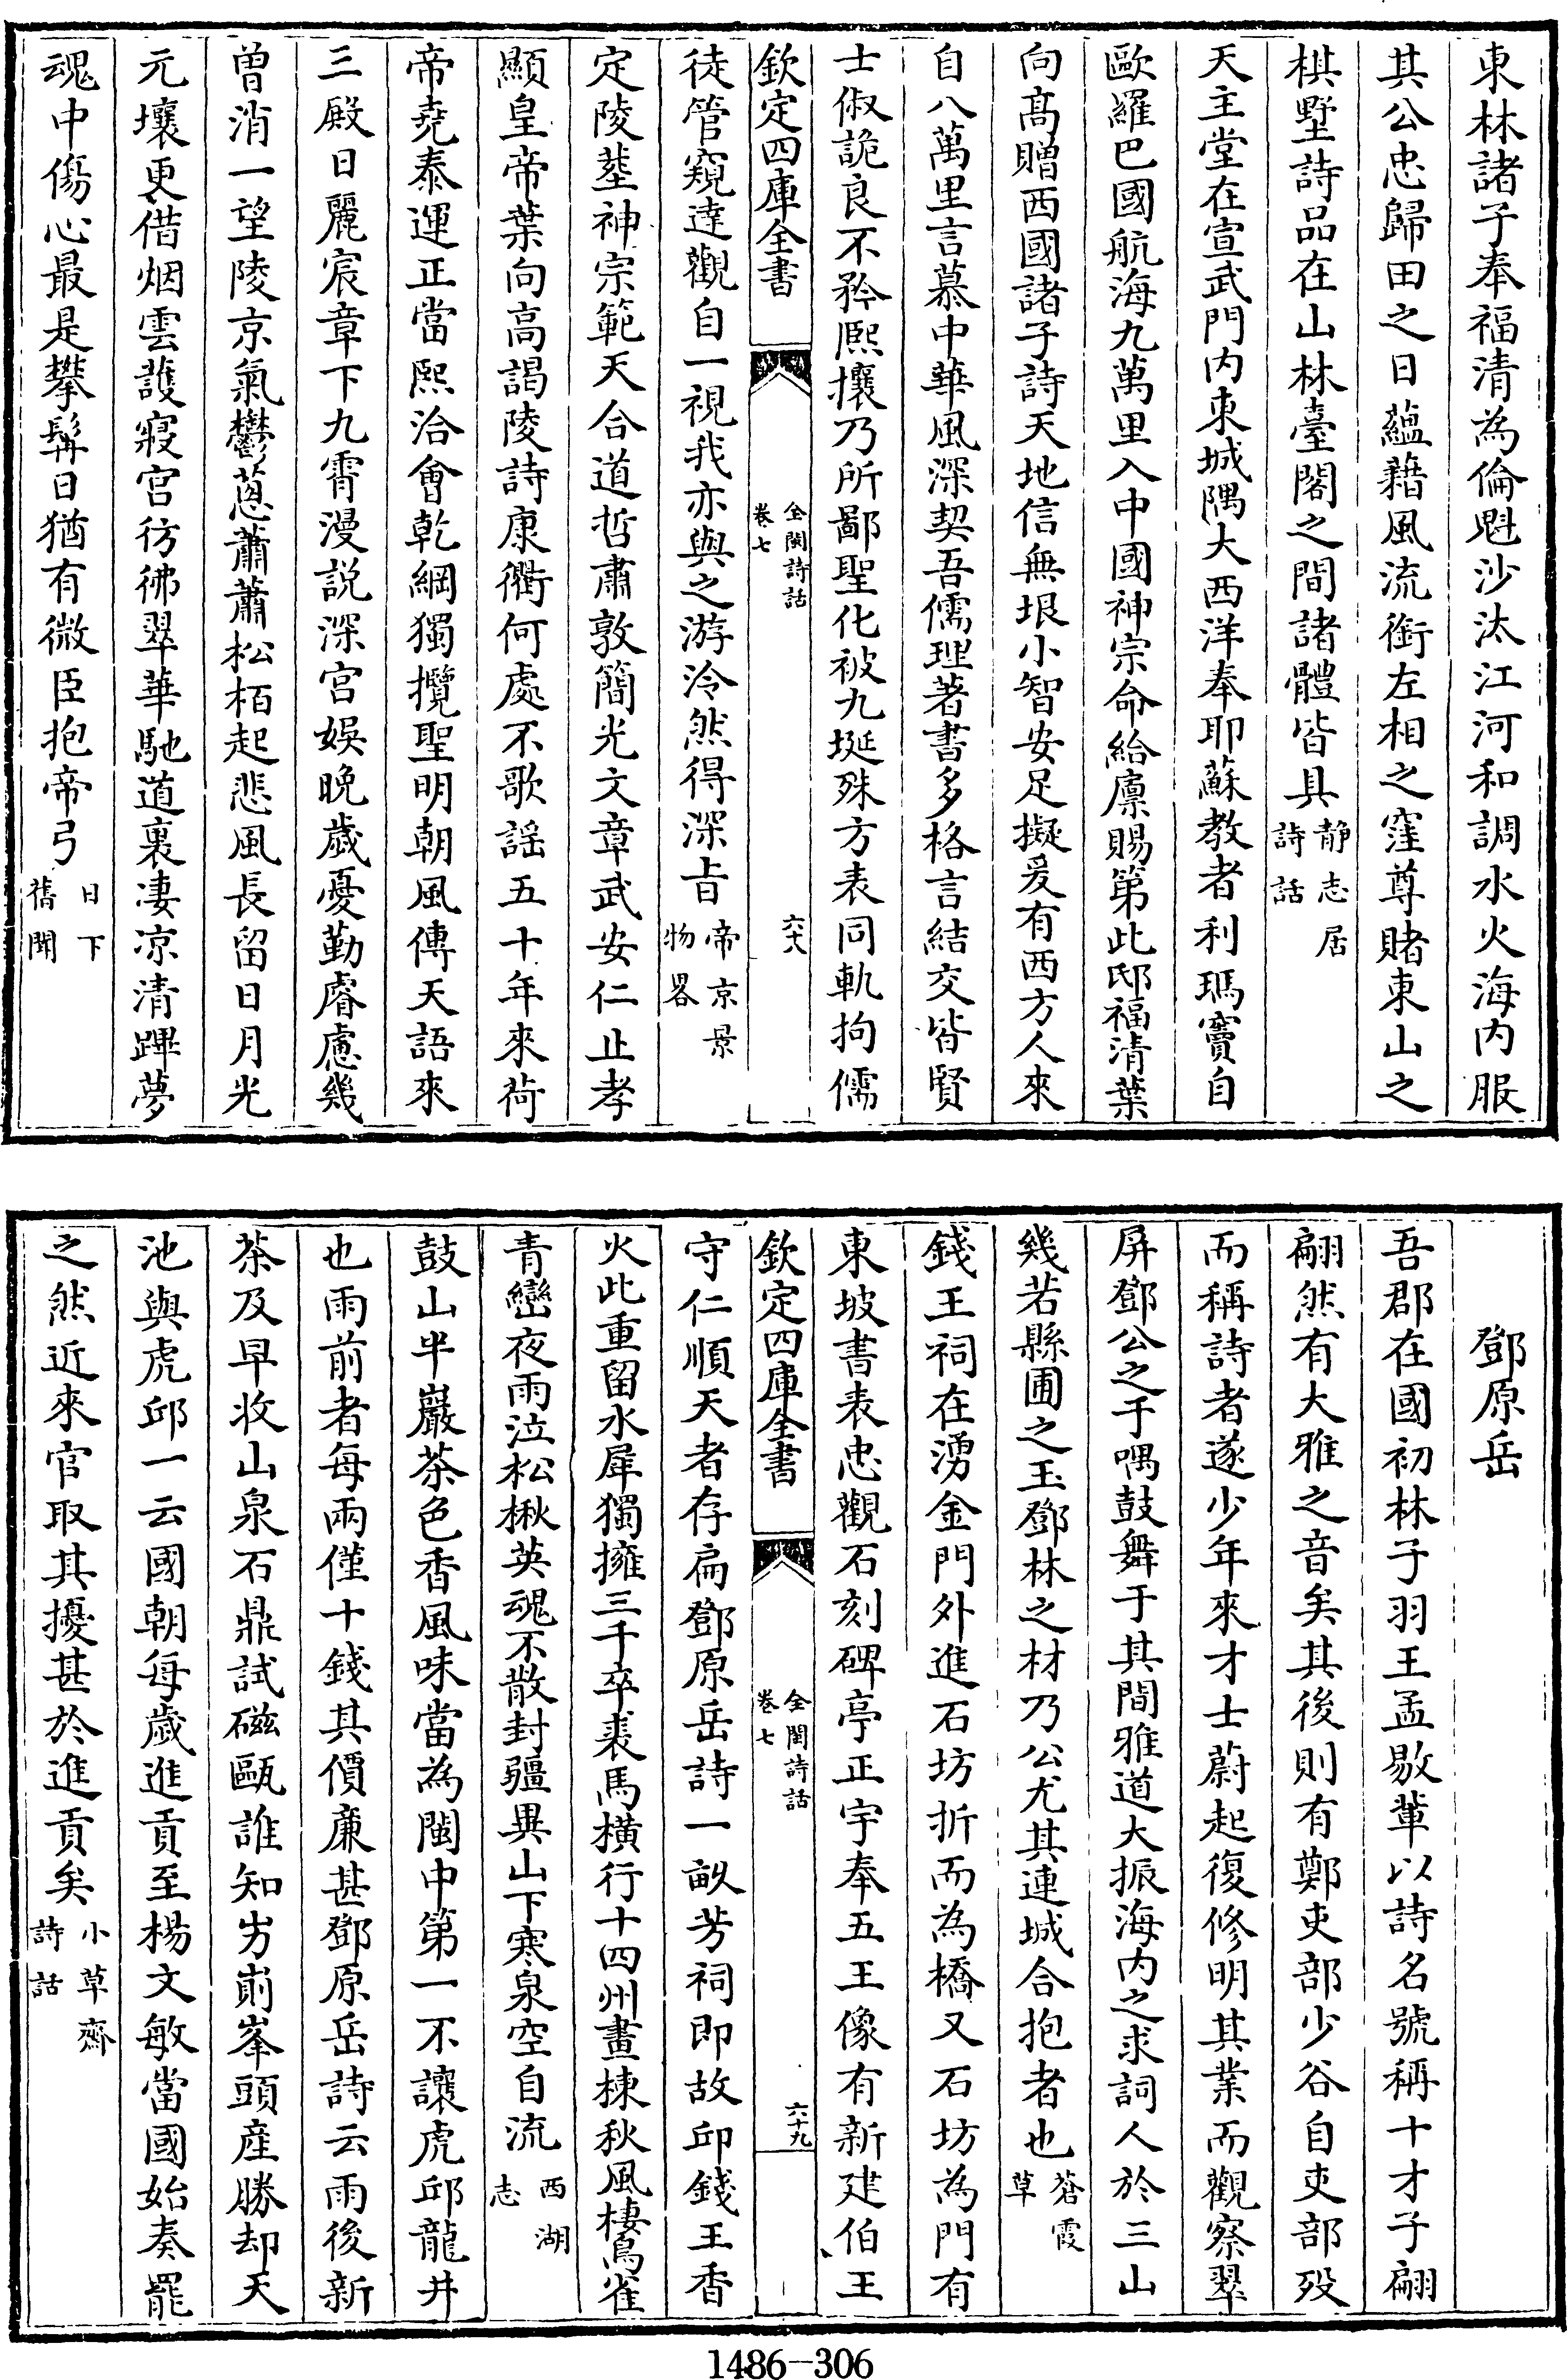 東林諸子奉福清為倫魁沙汰江河和調水火海内服
其公忠歸田之日蘊藉風流銜左相之窪尊賭東山之
棋墅詩品在山林臺閣之間諸體皆具静志居詩話
天主堂在宣武門内東城隅大西洋奉耶蘇教者利瑪竇自
歐羅巴國航海九萬里入中國神宗命給廩賜第此邸福清葉
向髙贈西國諸子詩天地信無垠小智安足擬爰有西方人來
自八萬里言慕中華風深契吾儒理著書多格言結交皆賢
士俶詭良不矜熙攘乃所鄙聖化被九埏殊方表同軌拘儒
欽定四庫全書
全閩詩話
卷七
六十八
徒管窺達觀自一視我亦與之游泠然得深旨帝京景物畧
定陵塟神宗範天合道哲肅敦簡光文章武安仁止孝
顯皇帝葉向高謁陵詩康衢何處不歌謡五十年來荷
帝堯泰運正當熙洽會乾綱獨攬聖明朝風傳天語來
三殿日麗宸章下九霄漫説深宫娱晚歲憂勤睿慮幾
曽消一望陵京氣鬱葱蕭蕭松栢起悲風長留日月光
元壤更借烟雲護寢宫彷彿翠華馳道裏凄凉清蹕夢
魂中傷心最是攀髯日猶有微臣抱帝弓日下舊聞
鄧原岳
吾郡在國初林子羽王孟敭輩以詩名號稱十才子翩
翩然有大雅之音矣其後則有鄭吏部少谷自吏部歿
而稱詩者遂少年來才士蔚起復修明其業而觀察翠
屏鄧公之于喁鼓舞于其間雅道大振海内之求詞人於三山
幾若縣圃之玉鄧林之材乃公尤其連城合抱者也蒼霞草
錢王祠在湧金門外進石坊折而為橋又石坊為門有
東坡書表忠觀石刻碑亭正宇奉五王像有新建伯王
欽定四庫全書
全閩詩話
卷七
六十九
守仁順天者存扁鄧原岳詩一畝芳祠即故邱錢王香
火此重留水犀獨擁三千卒裘馬横行十四州畫棟秋風棲鳥雀
青巒夜雨泣松楸英魂不散封疆異山下寒泉空自流西湖志
鼓山半巖茶色香風味當為閩中第一不讓虎邱龍井
也雨前者每兩僅十錢其價廉甚鄧原岳詩云雨後新
茶及早收山泉石鼎試磁甌誰知屴崱峯頭産勝却天
池與虎邱一云國朝每歲進貢至楊文敏當國始奏罷
之然近來官取其擾甚於進貢矣小草齋詩話
1486-306